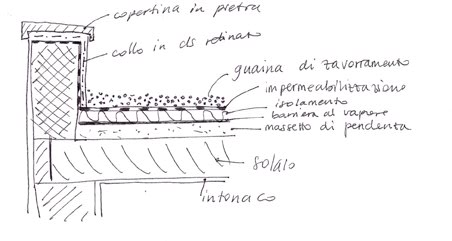 copertina in pietra
collo in cls retinato
guaina di zavorramento
impermeabilizzazione
isolamento
barriera al vapore
massetto di pendenza
solaio
intonaco